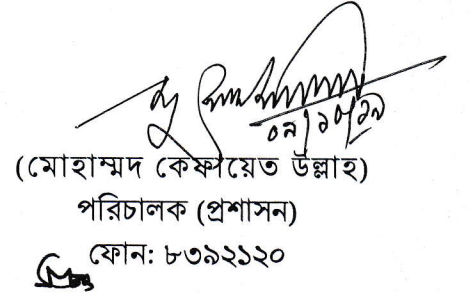 ০৯/১০/১৯
(মোহাম্মদ কেফায়েত উল্লাহ)
পরিচালক (প্রশাসন)
ফোন: ৮৩৯২১২০